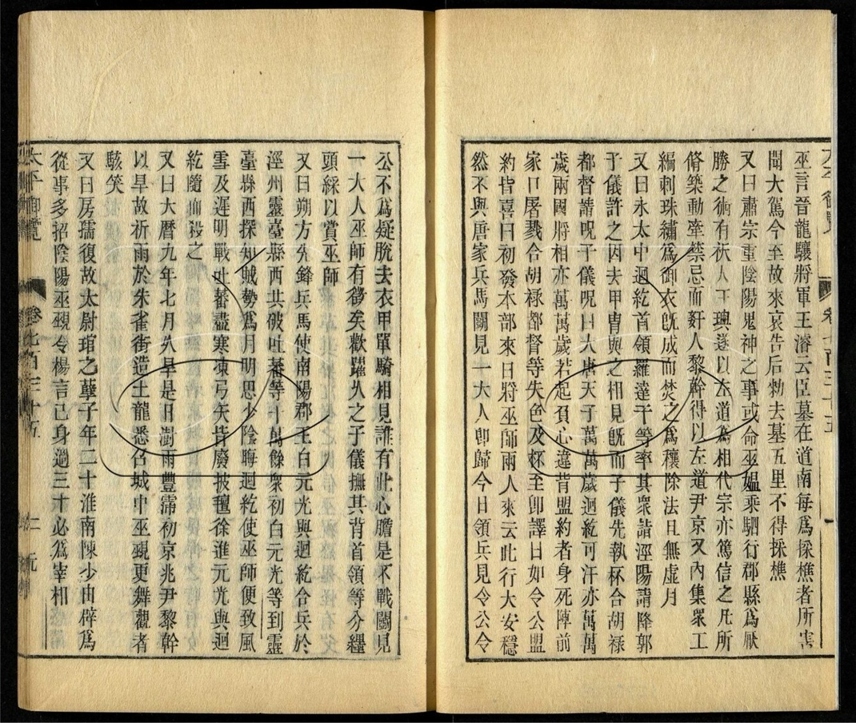 巫言晉龍驤將軍王濬云臣墓在道南每為採樵者所害
聞大駕今至故來哀告后勑去墓五里不得採樵
又曰肅宗重陰陽鬼神之事或命巫媼乘驛行郡縣為厭
勝之術有王璵遂以左道為相代宗亦篤信之凡所
脩築動牽禁忌而黎幹得以左道尹京又內集眾工
編刺珠繡為御衣旣成而焚之為禳除法且無虛月
又曰永太中迴紇首領羅達干等率其眾詣涇陽請降郭
子儀許之因去甲胄與之相見旣而子儀先執杯合胡祿
都督請呪子儀呪曰大唐天子萬萬歲迴紇可汗亦萬萬
歲兩國將相亦萬萬歲若起負心違背盟約者身死陣前
家口屠戮合胡祿都督等失色及杯至卽譯曰如令公盟
約皆喜曰初發本部來日將巫師兩人來云此行大安穩
然不與唐家兵馬鬭見一大人卽歸今日領兵見令公令
公不為疑脫去衣甲單騎相見誰有此心膽是不戰鬭見
一大人巫師有徵矣歡躍久之子儀撫其背首領等分纏
頭綵以賞巫師
又曰朔方先鋒兵馬使南陽郡王白元光與迴紇合兵於
涇州靈臺縣西共破吐蕃等十萬餘眾初白元光等到靈
臺縣西探知賊勢為月明思少陰晦迴紇使巫師便致風
雪及遲明戰吐蕃盡寒凍弓矢皆廢披氊徐進元光與迴
紇隨而殺之
又曰大曆九年七月久旱是日澍雨豐霈初京兆尹黎幹
以旱故祈雨於朱雀街造土龍悉召城中巫覡更舞觀者
駭笑
又曰房孺復故太尉琯之孽子年二十淮南陳少由辟為
從事多招陰陽巫覡令楊言已身過三十必為宰相
太平御覽 卷七百三十五